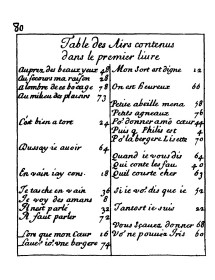 80
Table des Airs contenus
dans le premier liure
Aupres des beaux yeux 48
Au secours ma raison 28
A lombre de ce bocage 78
Au milieu des plaisirs 73
C'est bien a tort 24
auoir 64
En vain iay cens: 18
Ie tasche en vain 36
Ie voy des amans 8
Il n'est parlé 32
Il faut parler 72
Lors que mon Cœur 16
vne bergere 74
Mon Sort est digne 12
On est heureux 66
Petite abeille mena 58
Petits agneaux 76
Po.r donner a mõ cœur 44
Puis q Philis est 4
Po.r la bergere Lisette 70
Quand ie vous dis 64
Qui conte les fau 40
Quil couste cher 63
Si ie vo.s dis que ie 52
Tantost ie suis 22
Vous Scauez donner 68
Vo.s ne pouuez Iris 60